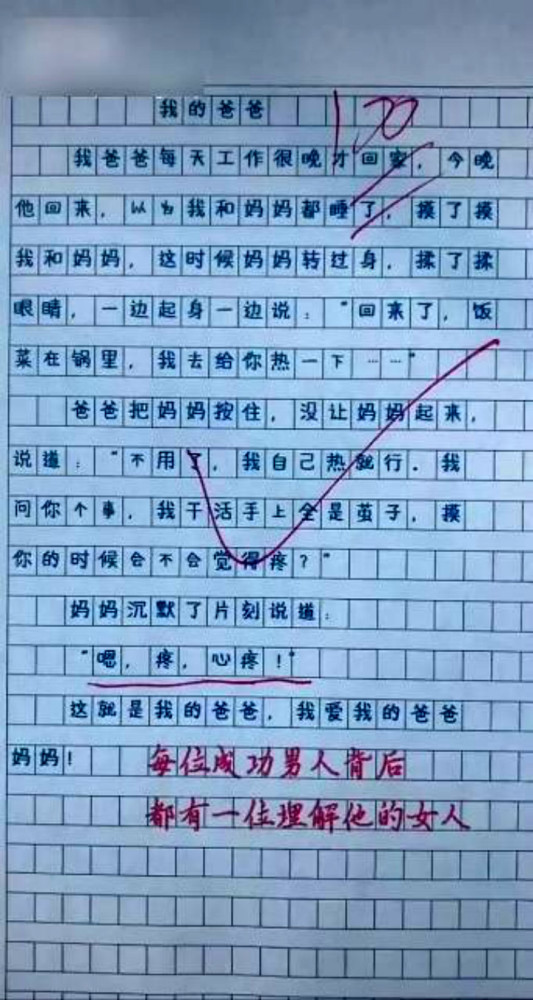 我的爸爸
120
我爸爸每天工作很晚才回家，今晚
他回来，以为我和妈妈都睡了，摸了摸
我和妈妈，这时候妈妈转过身，揉了揉
眼睛，一边起身一边说："回来了，饭
菜在锅里，我去给你热一下……"
爸爸把妈妈按住，没让妈妈起来，
说道："不用了，我自己热就行．我
问你个事，我干活手上全是茧子，摸
你的时候会不会觉得疼？"
妈妈沉默了片刻说道：
"嗯，疼，心疼！"
这就是我的爸爸，我爱我的爸爸
妈妈！
每位成功男人背后
都有一位理解他的女人